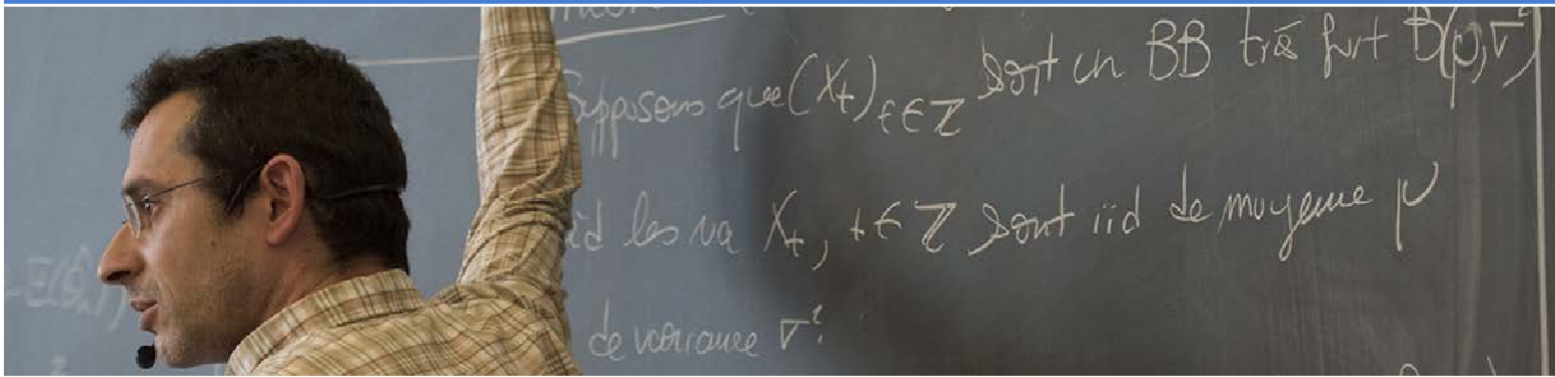 Supposons que (X_t)_{t∈Z} sont un BB très fort B(μ,σ²)
id les va X_t, t∈Z sont iid de moyenne μ
- E(θ̂
de variance σ²